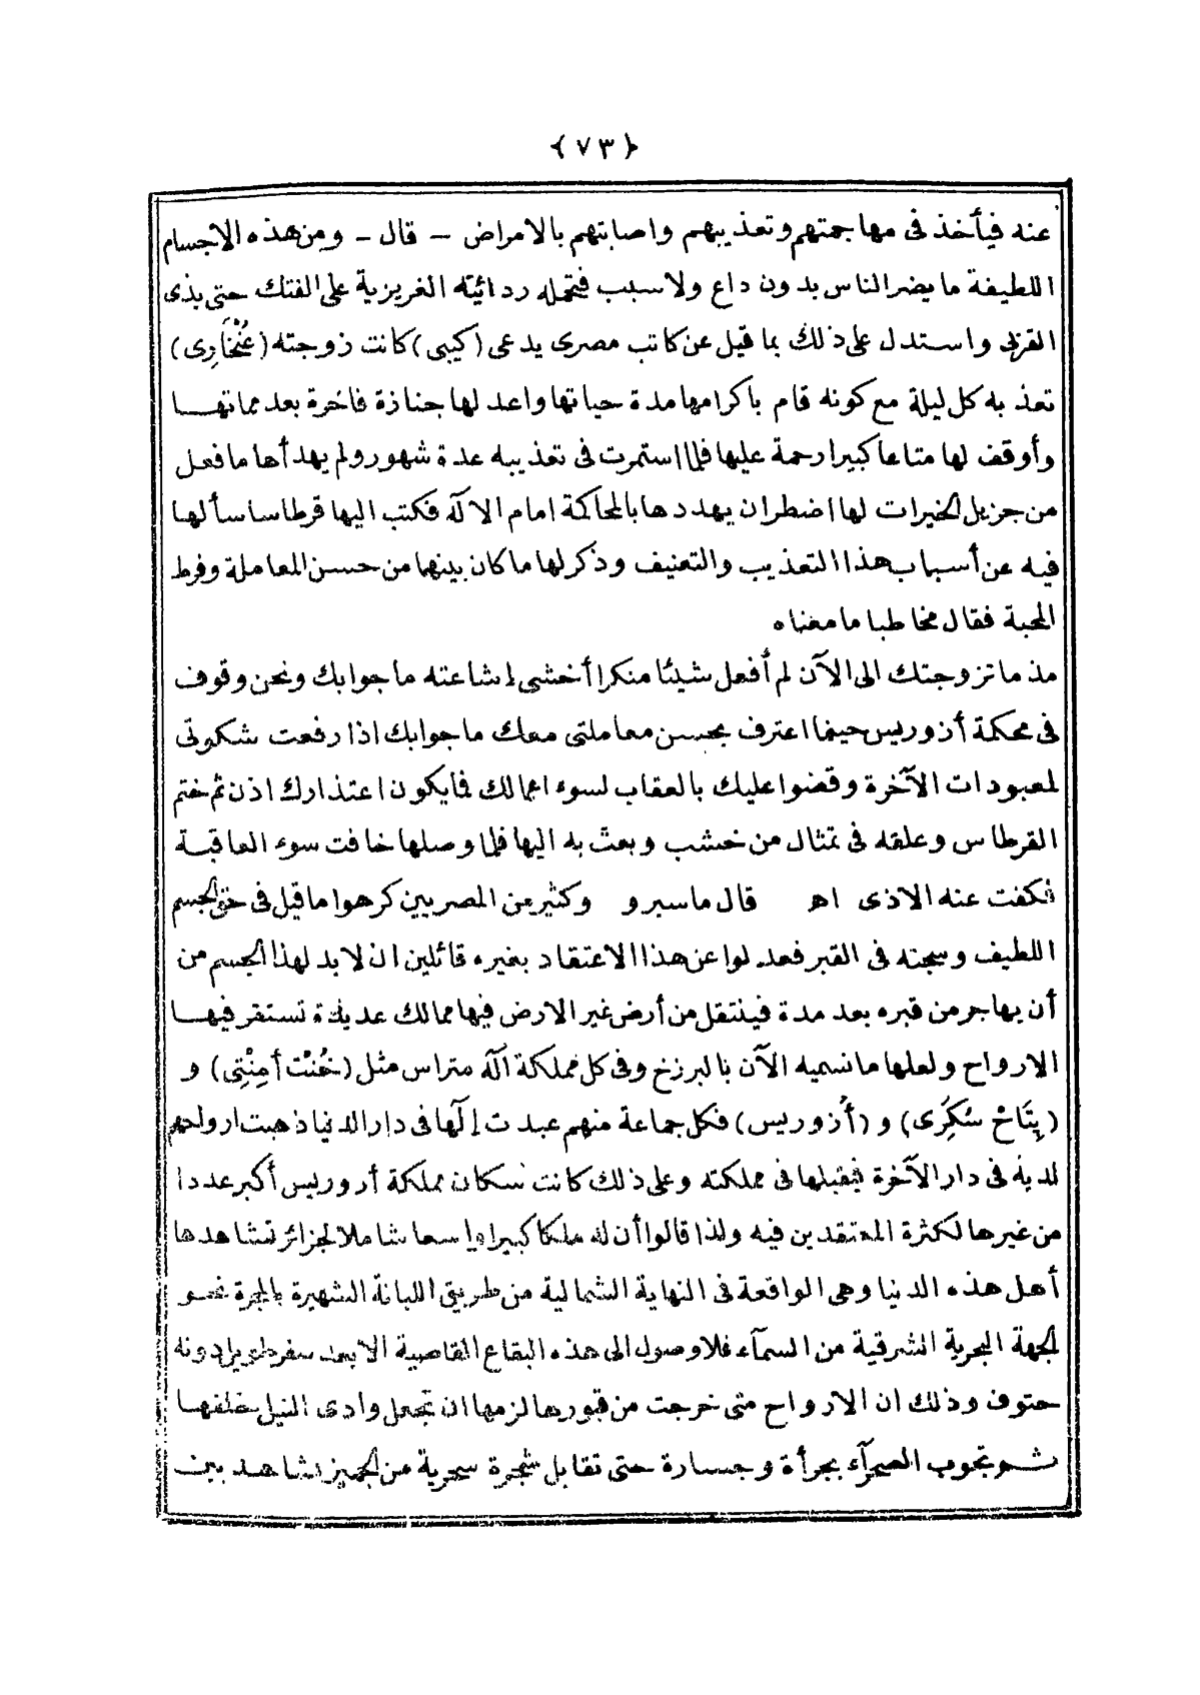 ﴿٧٣﴾
عنه فيأخذ فى مهاجمتهم وتعذيبهم واصابتهم بالامراض – قال – ومن هذه الاجسام
اللطيفة ما يضر الناس بدون داع ولا سبب فتحمله ردائيته الغريزية على الفتك حتى بذى
القربى واستدل على ذلك بما قيل عن كاتب مصرى يدعى (كيبى) كانت زوجته (عُنْخَارِى)
تعذبه كل ليلة مع كونه قام باكرامها مدة حياتها واعد لها جنازة فاخرة بعد مماتها
وأوقف لها متاعا كبيرا رحمة عليها فلما استمرت فى تعذيبه عدة شهور ولم يهدأها ما فعل
من جزيل الخيرات لها اضطر ان يهددها بالمحاكمة امام الآله فكتب اليها قرطاسا سألها
فيه عن أسباب هذا التعذيب والتعنيف وذكر لها ما كان بينهما من حسن المعاملة وفرط
المحبة فقال مخاطبا ما معناه
مذ ما تزوجتك الى الآن لم أفعل شيئا منكرا أخشى اشاعته ما جوابك ونحن وقوف
فى محكمة أزوريس حينما اعترف بحسن معاملتى معك ما جوابك اذا رفعت شكوتى
لمعبودات الآخرة وقضوا عليك بالعقاب لسوء اعمالك فما يكون اعتذارك اذن ثم ختم
القرطاس وعلقه فى تمثال من خشب وبعث به اليها فلما وصلها خافت سوء العاقبة
فكفت عنه الاذى اه قال ماسبرو وكثير من المصريين كرهوا ما قيل فى حق الجسم
اللطيف وسجنه فى القبر فعدلوا عن هذا الاعتقاد بغيره قائلين ان لابد لهذا الجسم من
أن يهاجر من قبره بعد مدة فينتقل من أرض غير الارض فيها ممالك عديدة تستقر فيها
الارواح ولعلها ما نسميه الآن بالبرزخ وفى كل مملكة آله متراس مثل (خُنْت أمِنْتِى) و
(بِتَاحْ سُكَرِى) و (أُزوريس) فكل جماعة منهم عبدت إلها فى دار الدنيا ذهبت ارواحهم
لديه فى دار الآخرة فيقبلها فى مملكته وعلى ذلك كانت سكان مملكة أزوريس أكبر عددا
من غيرها لكثرة المعتقدين فيه ولذا قالوا أن له ملكا كبيرا واسعا شاملا لجزائر تشاهدها
أهل هذه الدنيا وهى الواقعة فى النهاية الشمالية من طريق اللبانة الشهيرة بالمجرة نحو
الجهة البحرية الشرقية من السمآء فلا وصول الى هذه البقاع القاصية الا بعد سفر طويل دونه
حتوف وذلك ان الارواح متى خرجت من قبورها لزمها ان تجعل وادى النيل خلفها
ثم تجوب الصحرآء بجرأة وجسارة حتى تقابل شجرة سحرية من الجميز تشاهد بين